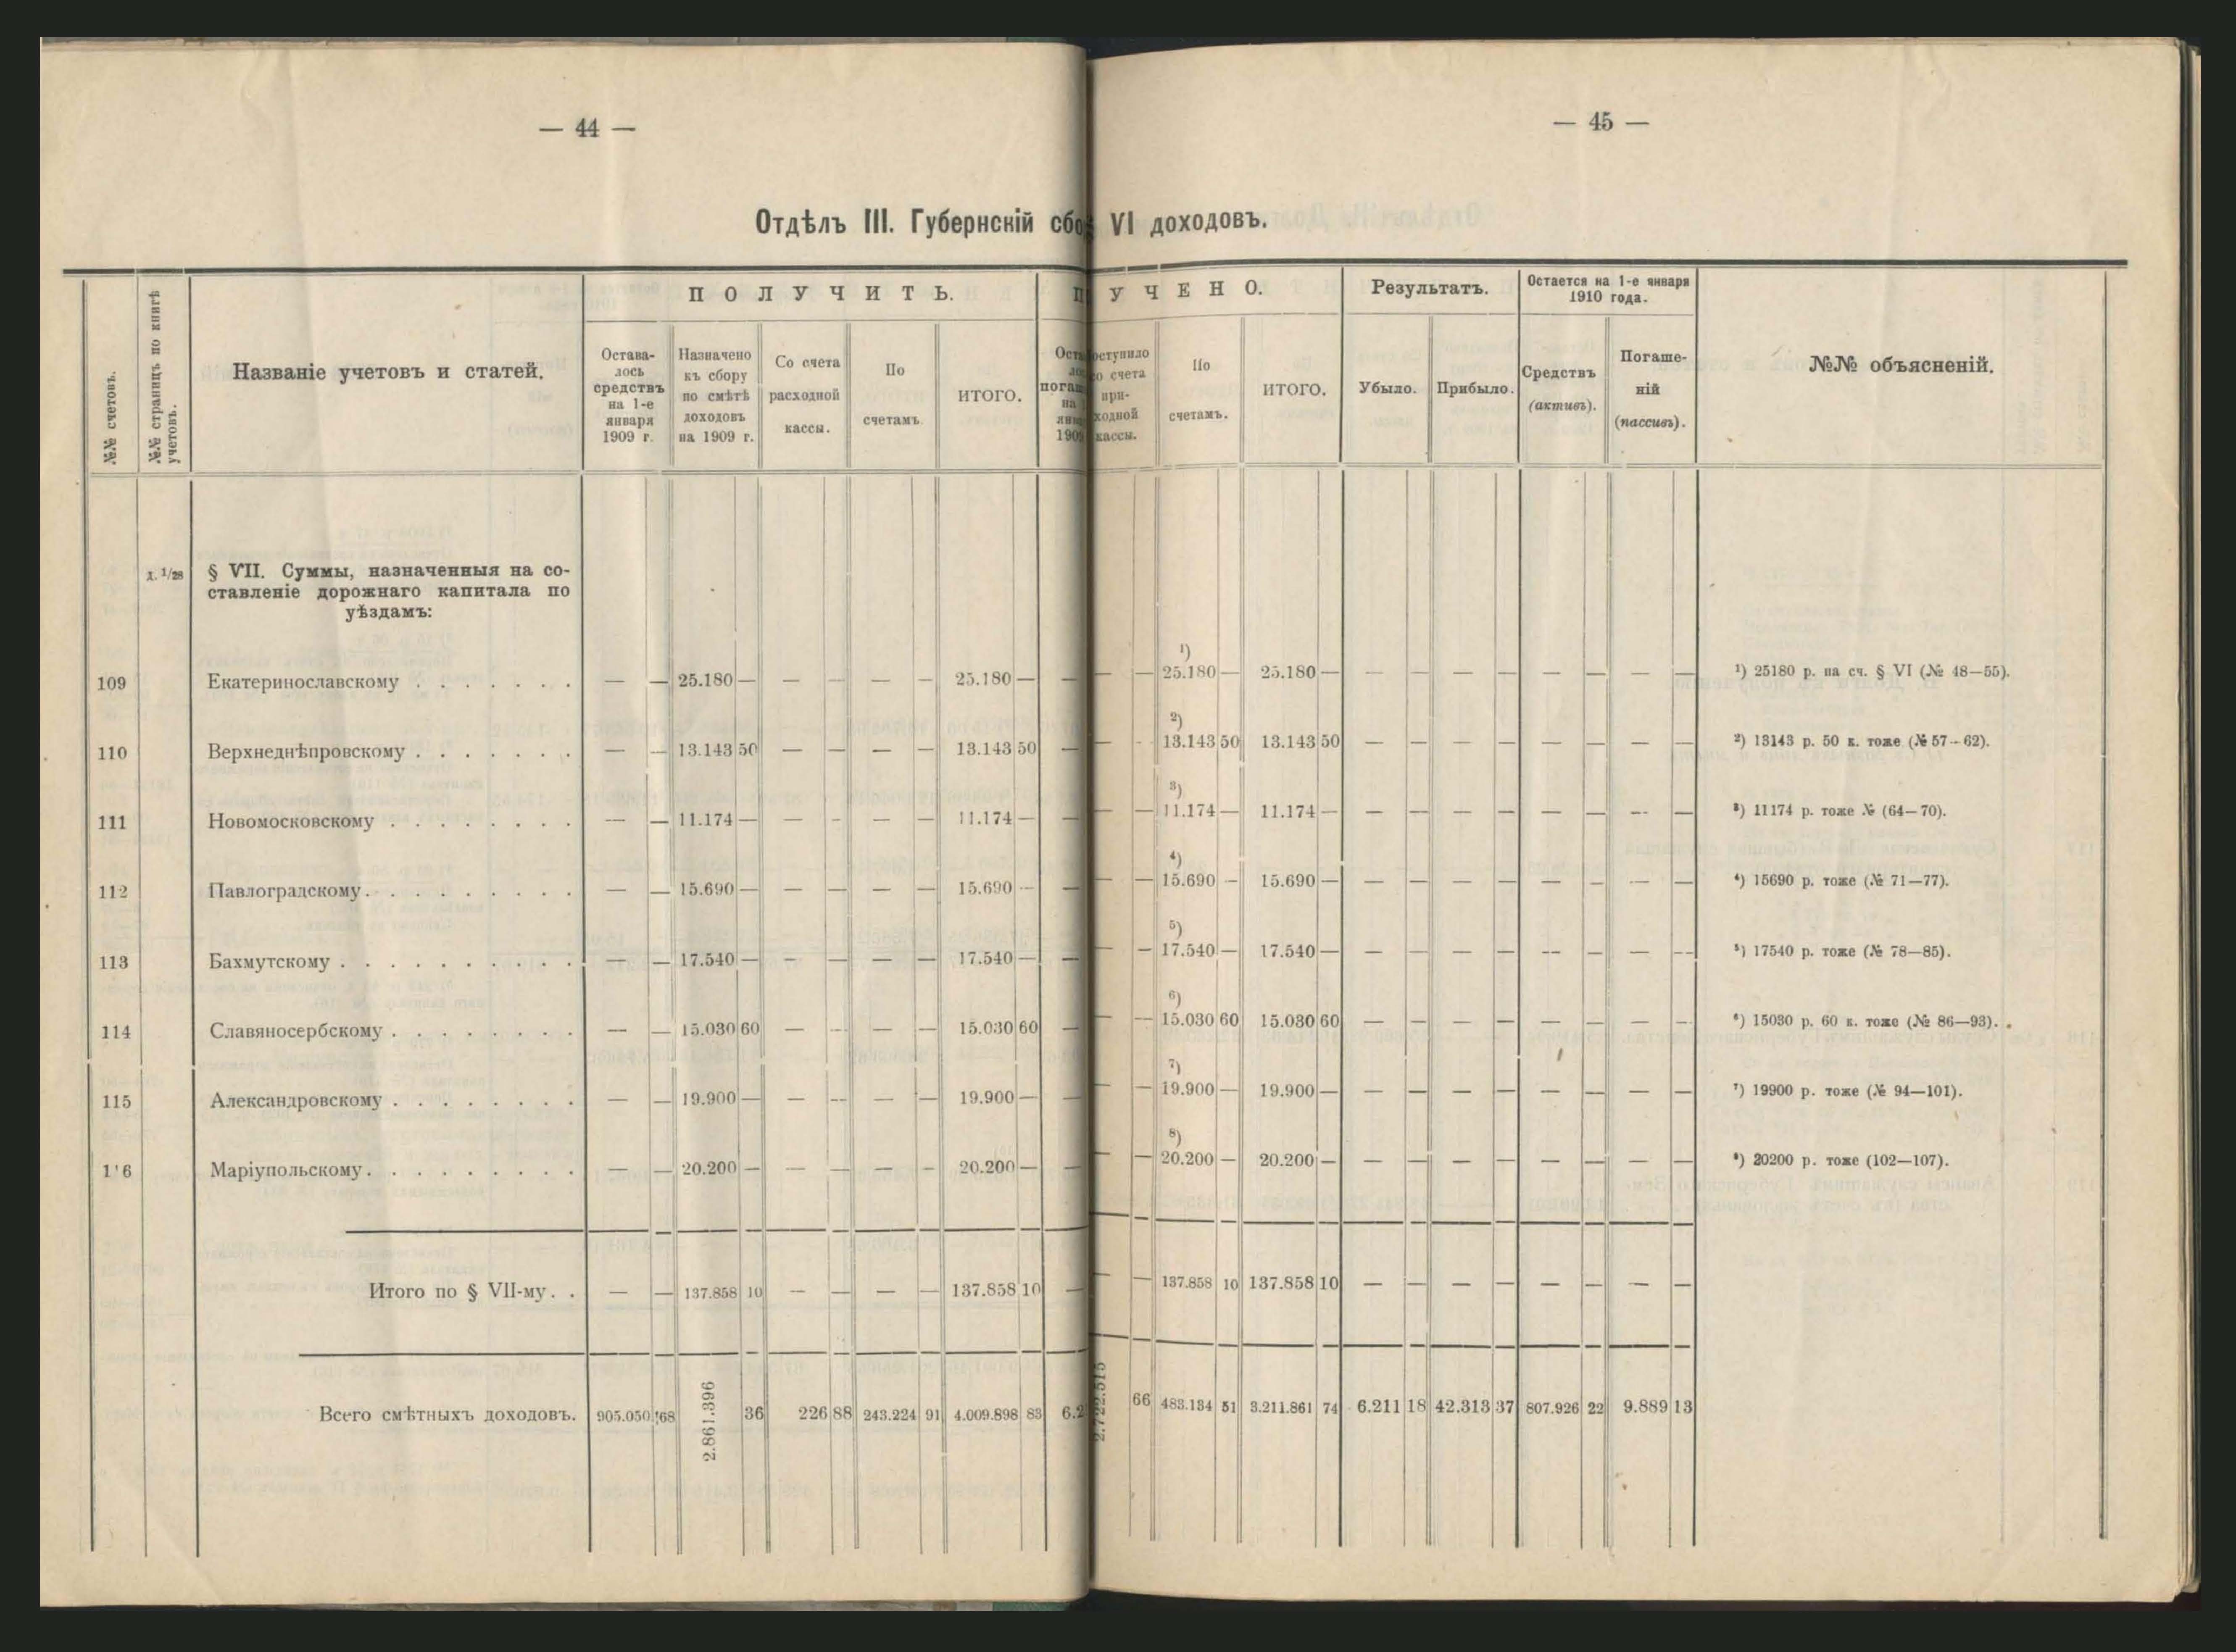 — 44 —
— 45 —
Отдѣлъ III. Губернскій сбо
VI доходовъ.
№№ счетовъ.
№№ страницъ по книгѣ учетовъ.
Названіе учетовъ и статей.
ПОЛУЧИТЬ.
Остава-
лось
средствъ
на 1-е
января
1909 г.
Назначено
къ сбору
по смѣтѣ
доходовъ
на 1909 г.
Со счета
расходной
кассы.
По
счетамъ
ИТОГО.
УЧЕНО.
при-
кассы.
По
счетамъ.
ИТОГО.
Результатъ.
Убыло.
Прибыло.
Остается на 1-е января
1910 года.
Средствъ
(активъ).
Погаше-
ній
(пассивъ).
№№ объясненій.
д. 1/28 § VII. Суммы, назначенныя на со-
ставленіе дорожнаго капитала по
уѣздамъ:
109 Екатеринославскому . . . . . . . — — 25.180 — — — — — 25.180 — — — — ¹) 25.180 — 25.180 — — — — — — — — — ¹) 25180 р. на сч. § VI (№ 48—55).
110 Верхнеднѣпровскому . . . . . . . — — 13.143 50 — — — — 13.143 50 — — - ²) 13.143 50 13.143 50 — — — — — — — — ²) 13143 р. 50 к. тоже (№ 57--62).
111 Новомосковскому . . . . . . . . — — 11.174 — — - — — 11.174 — — — — ³) 11.174 — 11.174 — — — — — — — -- — ³) 11174 р. тоже № (64—70).
112 Павлоградскому . . . . . . . . . — — 15.690 — — — — — 15.690 -- — — — ⁴) 15.690 — 15.690 — — — — — — — — — ⁴) 15690 р. тоже (№ 71—77).
113 Бахмутскому . . . . . . . . . . — — 17.540 — - — — — 17.540 — — — — ⁵) 17.540 — 17.540 — — — — — -- — — -- ⁵) 17540 р. тоже (№ 78—85).
114 Славяносербскому . . . . . . . . — — 15.030 60 — -- — — 15.030 60 — — — ⁶) 15.030 60 15.030 60 — — — — — — — — ⁶) 15030 р. 60 к. тоже (№ 86—93).
115 Александровскому . . . . . . . . — — 19.900 — — -- — — 19.900 — — — — ⁷) 19.900 — 19.900 — — — — — — — — — ⁷) 19900 р. тоже (№ 94—101).
1'6 Маріупольскому . . . . . . . . . — — 20.200 — — — — - 20.200 — — — — ⁸) 20.200 — 20.200 — — — — — — — — — ⁸) 20200 р. тоже (102—107).
Итого по § VII-му. . — — 137.858 10 — — — — 137.858 10 — — — 137.858 10 137.858 10 — — — — — — — —
Всего смѣтныхъ доходовъ. 905.050 68 2.861.396 36 226 88 243.224 91 4.009.898 83 6.2 2.722.515 66 483.134 51 3.211.861 74 6.211 18 42.313 37 807.926 22 9.889 13